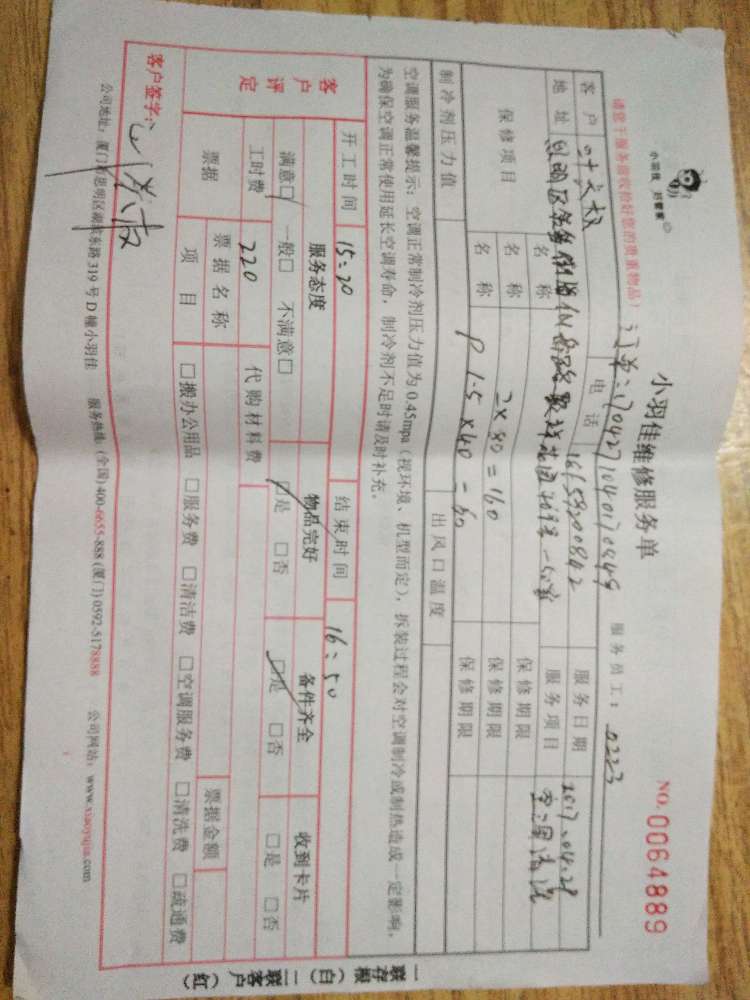 小羽佳 好管家
小羽佳维修服务单
NO. 0064889
请您于服务前收拾好您的贵重物品!
订单:170427104017
服务员工: 0223
客户 电话 服务日期 2017.04.28
地址 服务项目 空调清洗
保修项目 名称 保修期限
名称 2×80=160 保修期限
名称 P 1.5×40=60 保修期限
制冷剂压力值 出风口温度
空调服务温馨提示:空调正常制冷剂压力值为0.45mpa(视环境、机型而定),拆装过程会对空调制冷或制热造成一定影响,
为确保空调正常使用延长空调寿命,制冷剂不足时请及时补充。
开工时间 15:20 结束时间 16:50
客户评定 服务态度 物品完好 备件齐全 收到卡片
满意□ 一般□ 不满意□ □是 □否 □是 □否 □是 □否
工时费 220 代购材料费
票据 票据名称 票据金额
项目 □搬办公用品 □服务费 □清洁费 □空调服务费 □清洗费 □疏通费
客户签字:
公司地址:厦门市思明区湖滨东路319号D幢小羽佳 服务热线:(全国)400-6655-888 (厦门)0592-5178888 公司网站:www.xiaoyujia.com
一联存根(白) 二联客户(红)